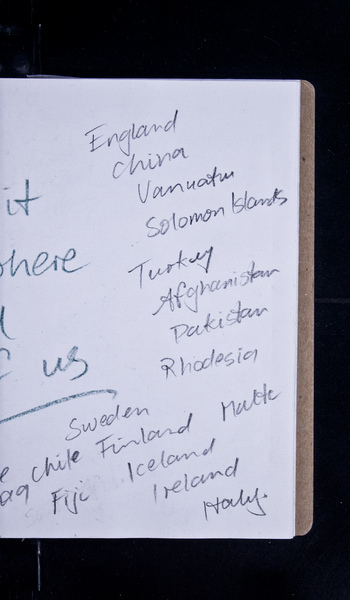 England
China
Vanuatu
Solomon Islands
it
Turkey
here
Afghanistan
Pakistan
us
Rhodesia
Sweden
Malta
Chile Finland
Iceland
Fiji
Ireland
Italy.